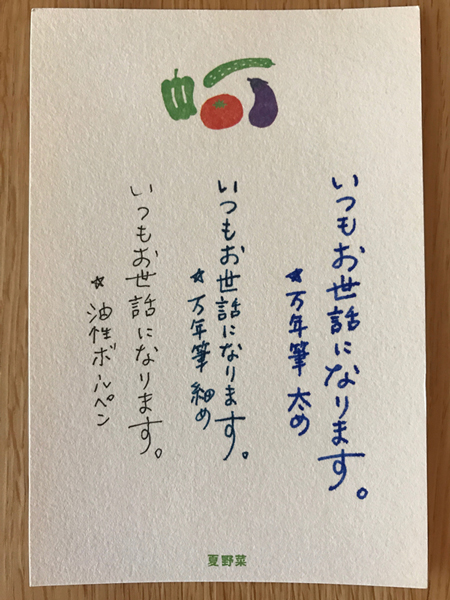 いつもお世話になります。
☆万年筆 太め
いつもお世話になります。
☆万年筆 細め
いつもお世話になります。
☆油性ボールペン
夏野菜